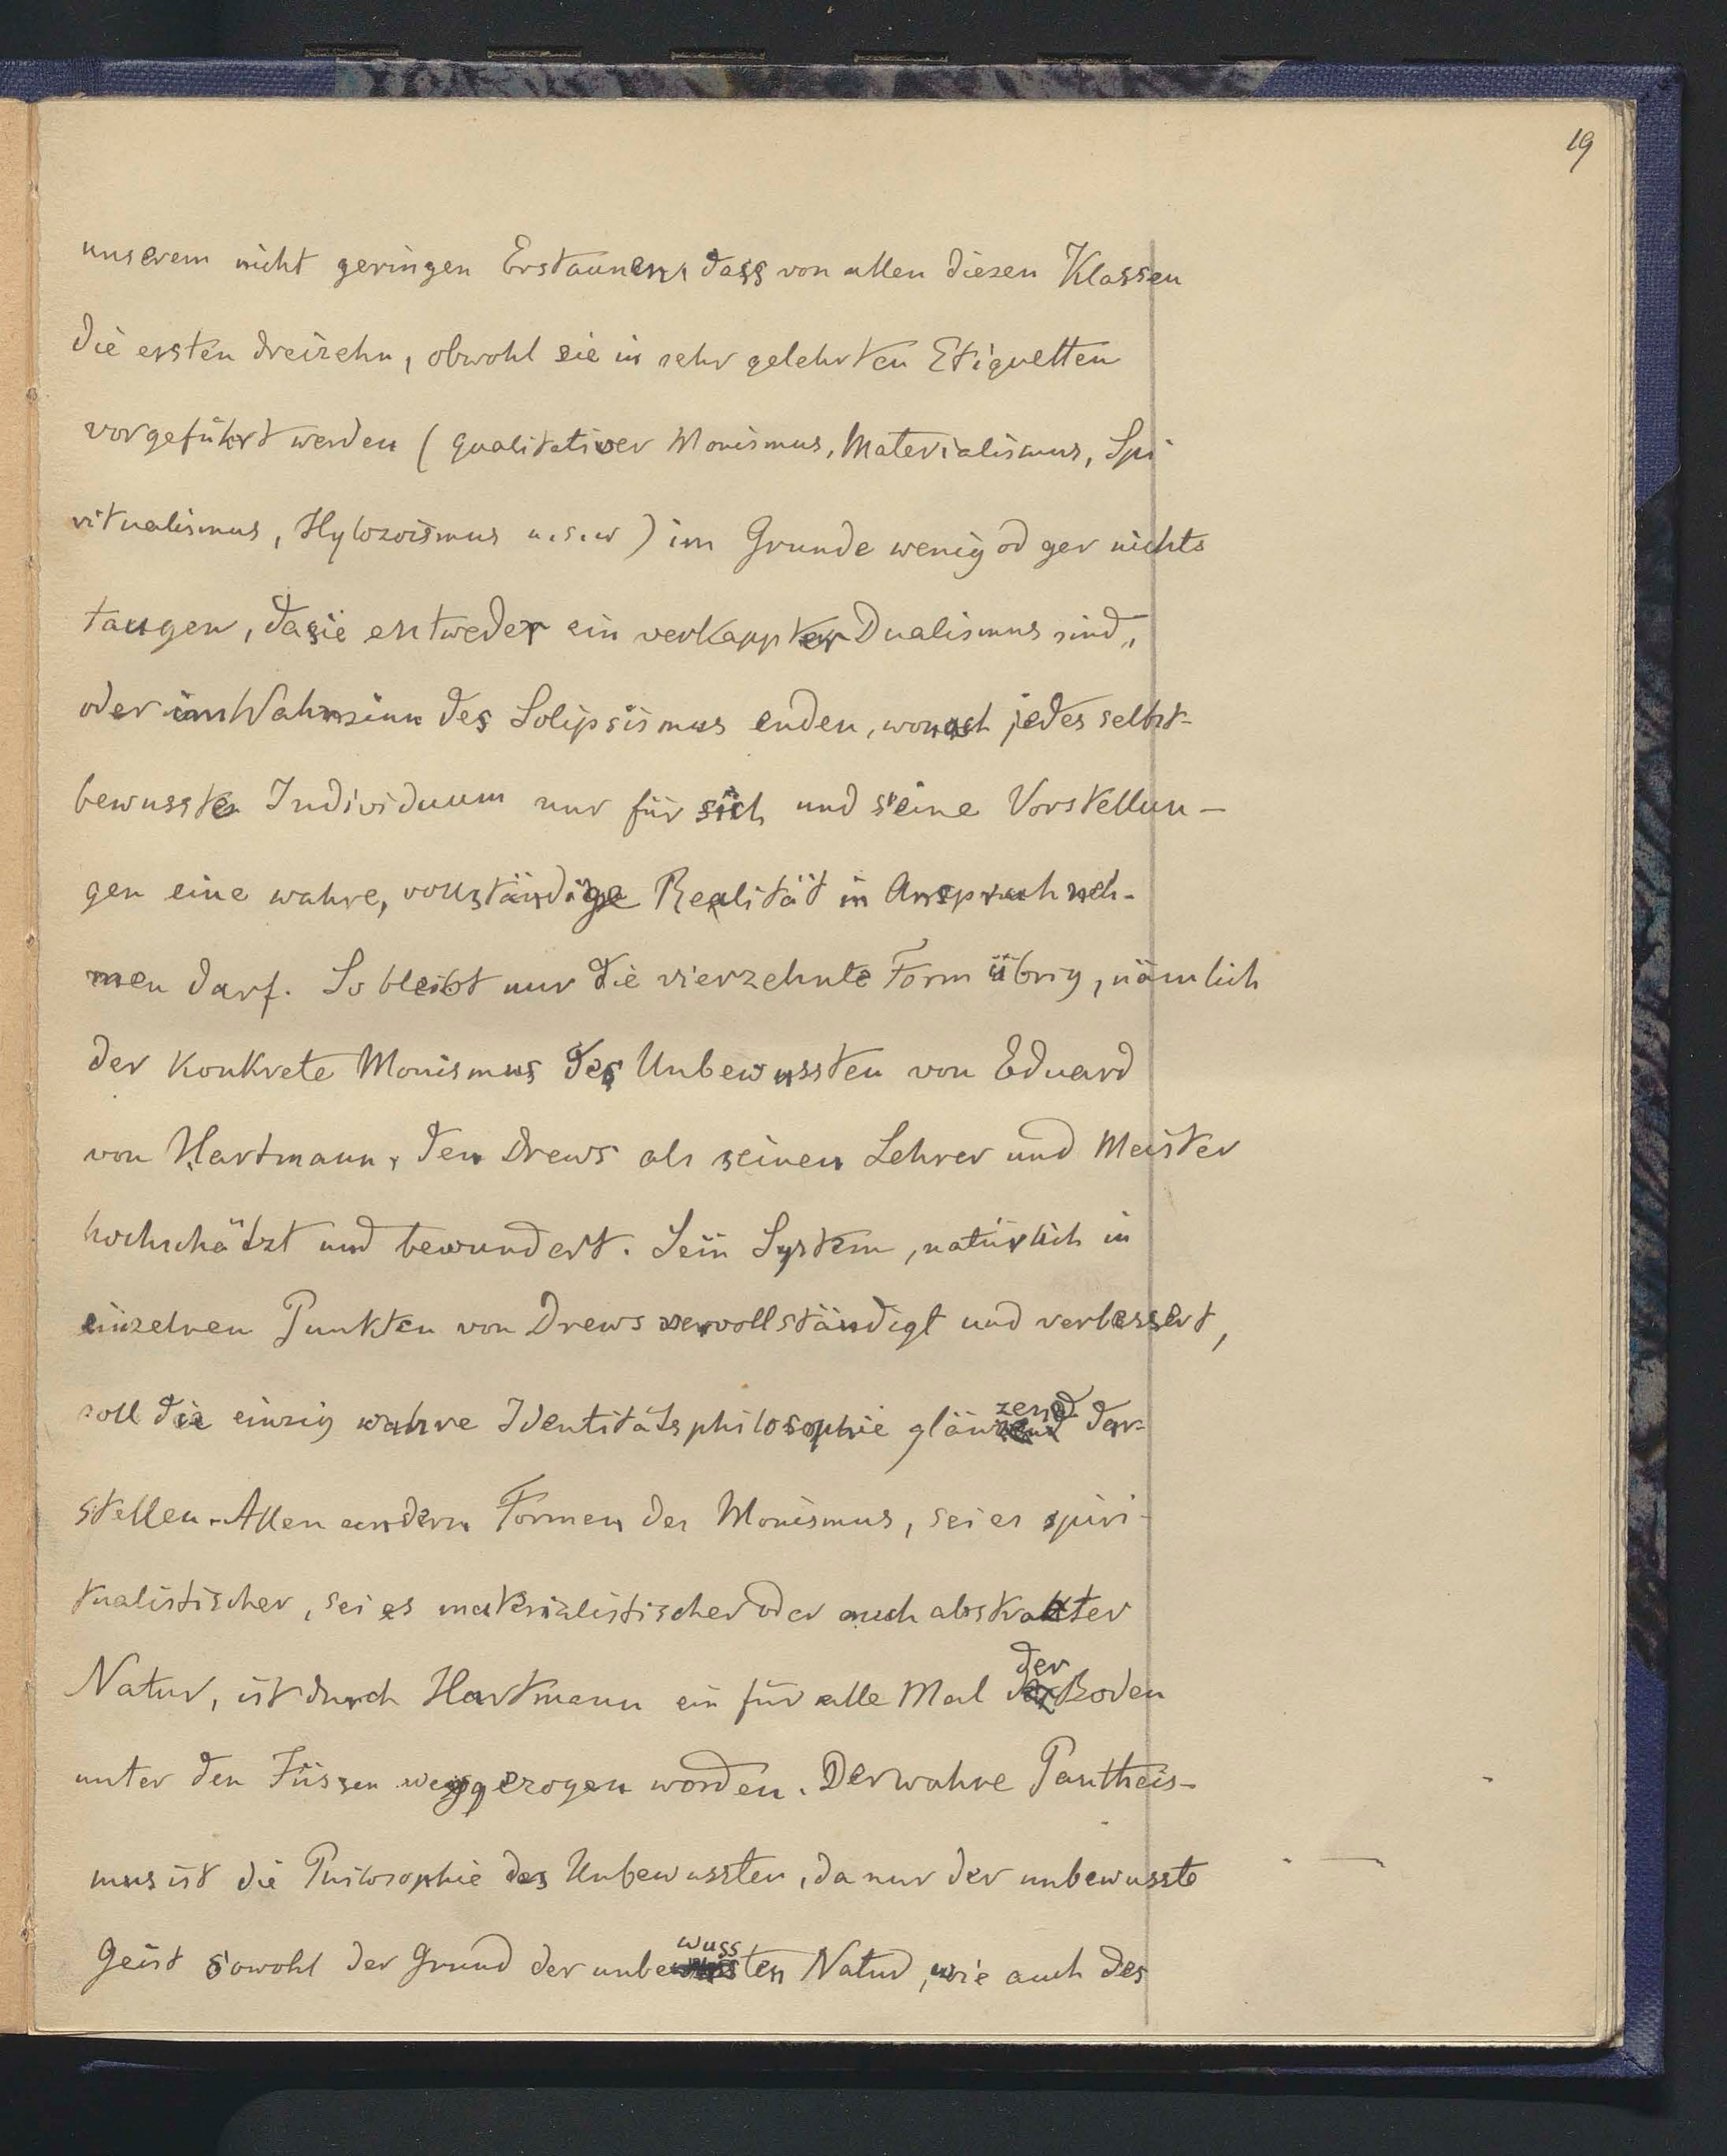 19
unserem nicht geringen Erstaunen, dass von allen diesen Klassen
die ersten dreizehn, obwohl sie in sehr gelehrten Etiquetten
vorgeführt werden (qualitativer Monismus, Materialismus, Spi
ritualismus, Hylozoismus u.s.w) im Grunde wenig od gar nichts
taugen, da sie entweder ein verkappter Dualismus sind,
oder im Wahnsinn des Solipsismus enden, wonach jedes selbst-
bewusste Individuum nur für sich und seine Vorstellun-
gen eine wahre, vollständige Realität in Anspruch neh-
men darf. So bleibt nur die vierzehnte Form übrig, nämlich
der konkrete Monismus des Unbewussten von Eduard
von Hartmann, den Drews als seinen Lehrer und Meister
hochschätzt und bewundert. Sein System, natürlich in
einzelnen Punkten von Drews vervollständigt und verbessert,
soll die einzig wahre Identitätsphilosophie glänzend dar-
stellen. Allen andern Formen des Monismus, sei es spiri-
tualistischer, sei es materialistischer oder auch abstrakter
Natur, ist durch Hartmann ein für alle Mal der Boden
unter den Füssen weggezogen worden. Der wahre Pantheis-
mus ist die Philosophie des Unbewussten, da nur der unbewusste
Geist sowohl der Grund der unbewussten Natur, wie auch des